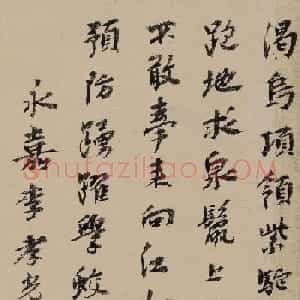 渴烏項領紫駝
跑地求泉鬣上
不敢牽來向江
預防躍擊蛟
永嘉李孝光
shufaziliao.com